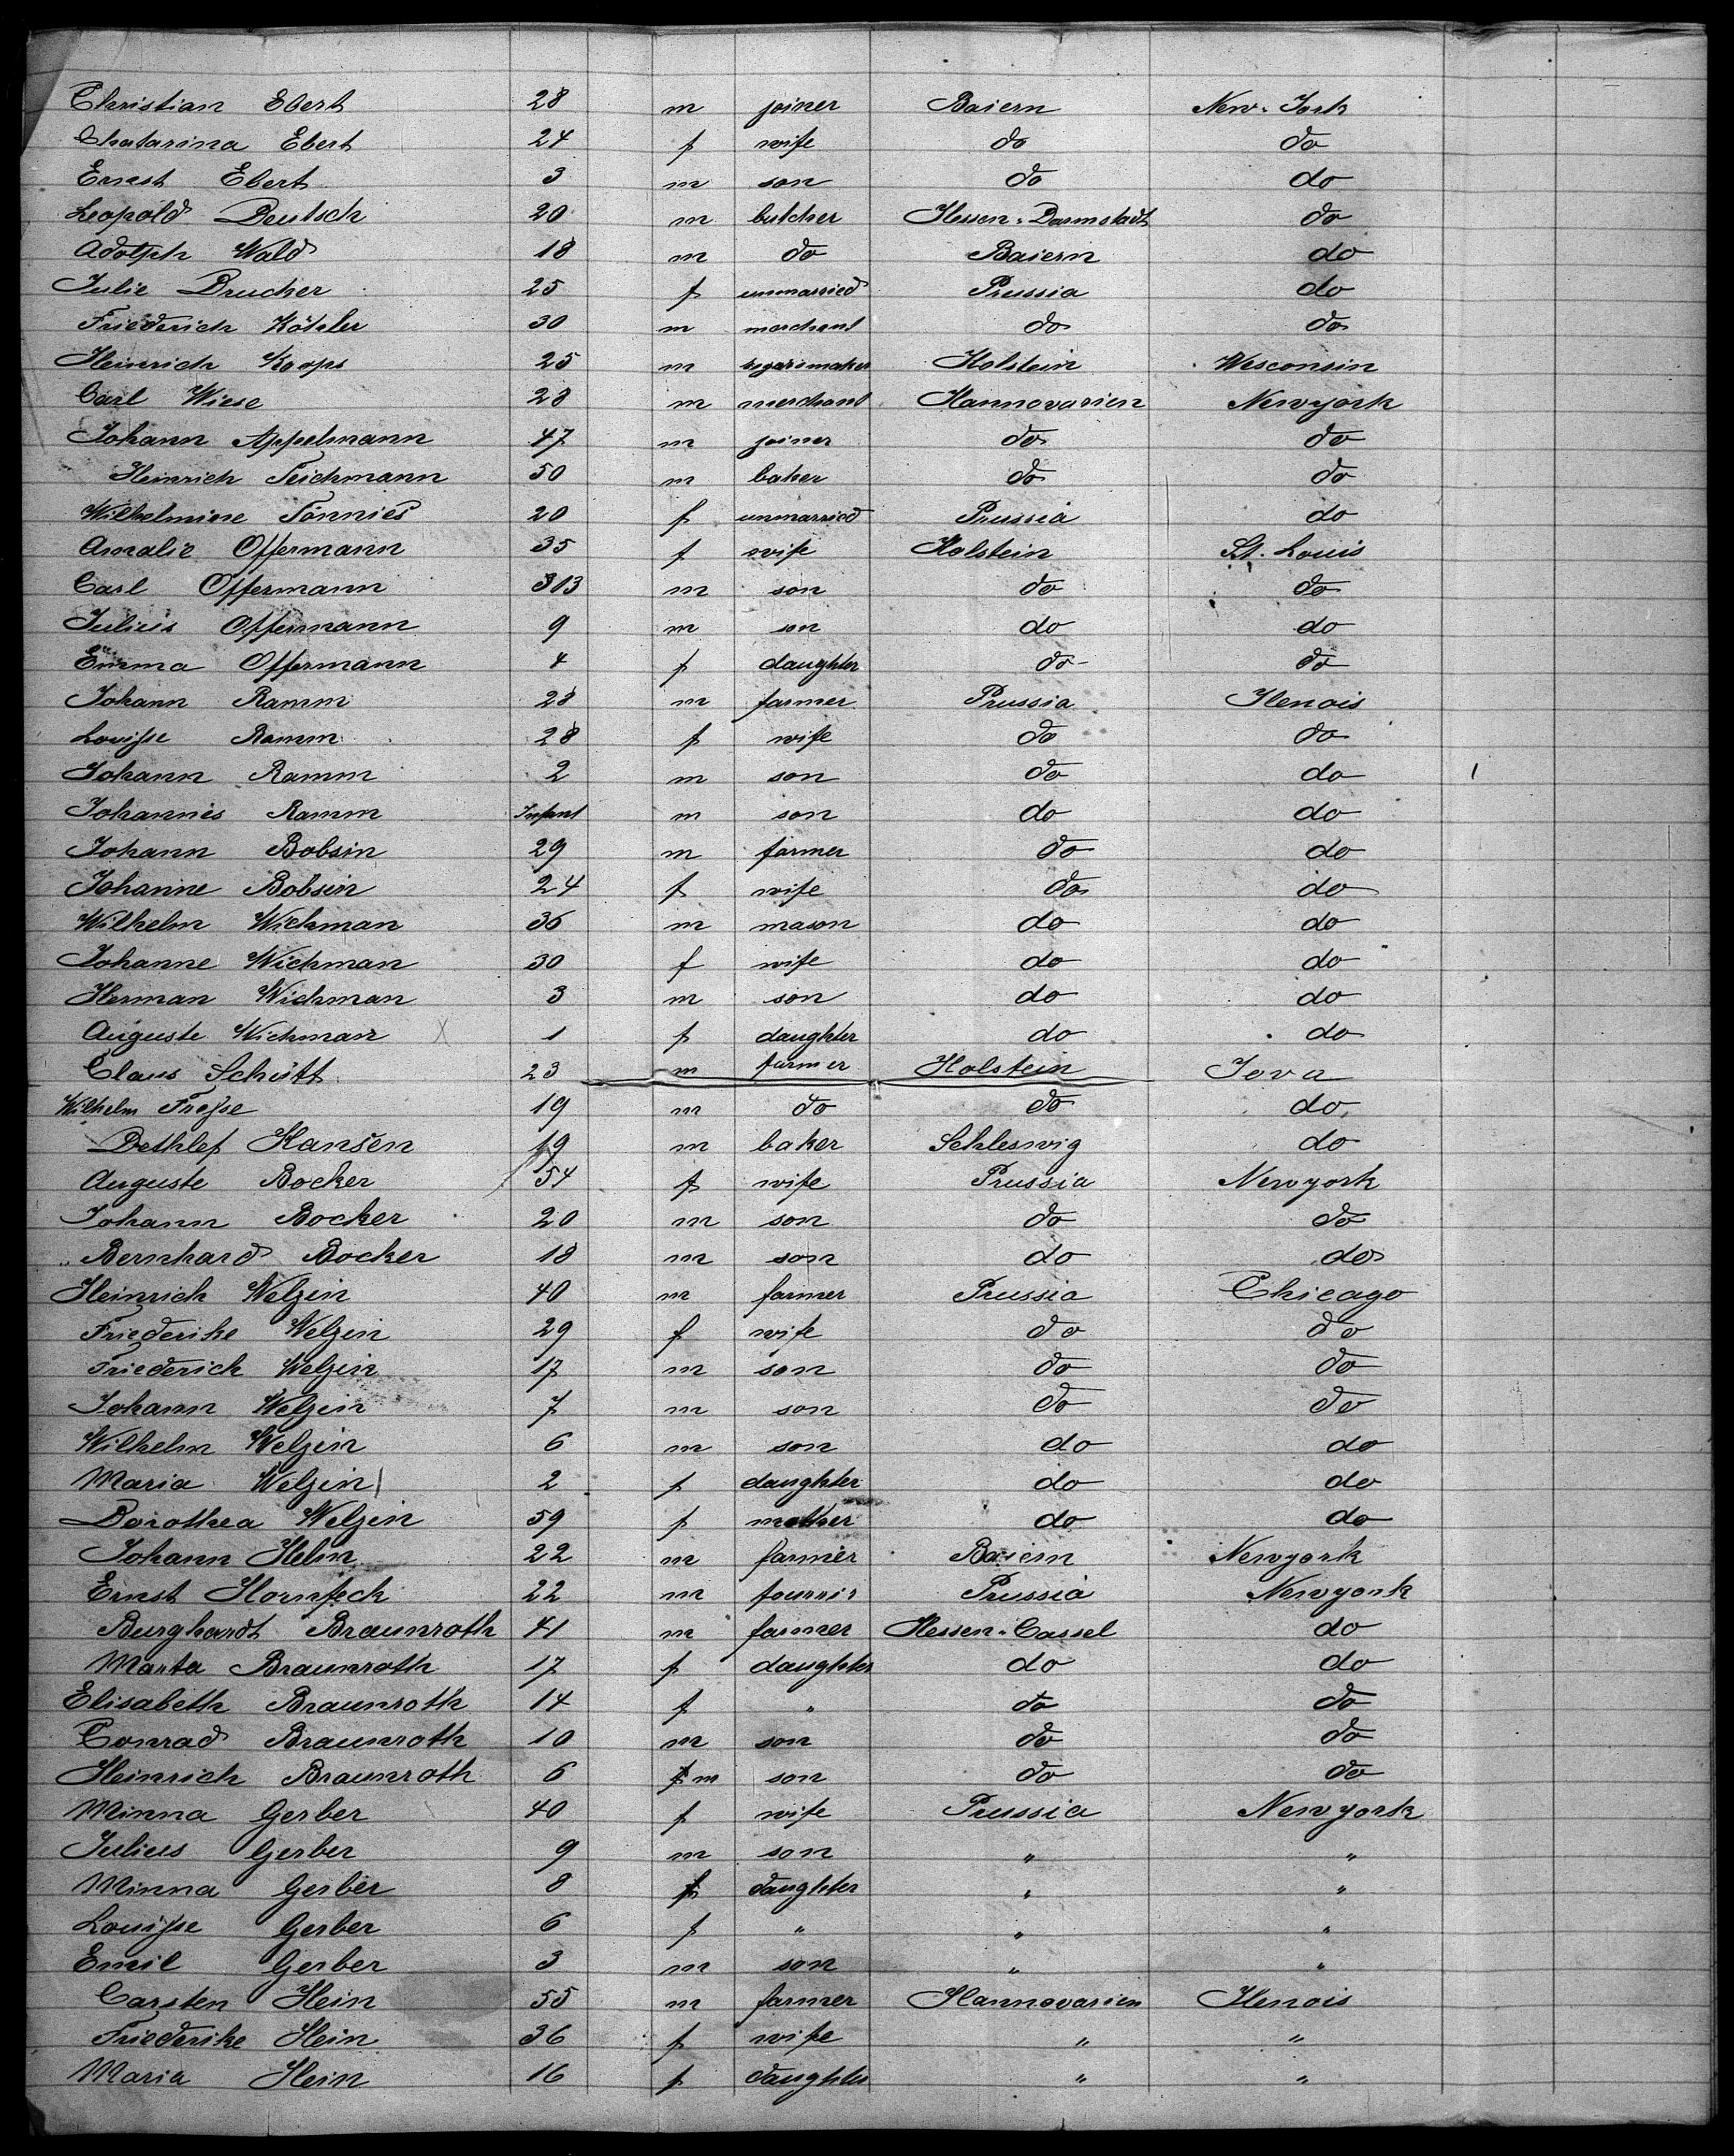 Christian Ebert 28 m joiner Baiern New-York
Chatarina Ebert 24 f wife do do
Ernest Ebert 3 m son do do
Leopold Deutsch 20 m butcher Hessen-Darmstadt do
Adolph Wald 18 m do Baiern do
Julie Drucker 25 f unmarried Prussia do
Friederich Köhler 30 m merchant do do
Heinrich Koops 25 m Holstein Wesconsin
Carl Wiese 28 m merchant Hannovarien Newyork
Johann Appelmann 47 m joiner do do
Heinrich Teichmann 50 m baker do do
Wilhelmine Tönnies 20 f unmarried Prussia do
Amalie Offermann 35 f wife Holstein St. Louis
Carl Offermann 313 m son do do
Julius Offermann 9 m son do do
Emma Offermann 4 f daughter do do
Johann Ramm 28 m farmer Prussia Ilenois
Louisse Ramm 28 f wife do do
Johann Ramm 2 m son do do
Johannes Ramm Infant m son do do
Johann Bobsin 29 m farmer do do
Johanne Bobsin 24 f wife do do
Wilhelm Wichman 36 m mason do do
Johanne Wichman 30 f wife do do
Herman Wichman 3 m son do do
Auguste Wichman 1 f daughter do do
Claus Schütt 23 m farmer Holstein Jova
Wilhelm Fresse 19 m do do do
Dethlef Hansen 19 m baker Schleswig do
Auguste Bocker 54 f wife Prussia Newyork
Johann Bocker 20 m son do do
Bernhard Bocker 18 m son do do
Heinrich Welzin 40 m farmer Prussia Chicago
Friederike Welzin 29 f wife do do
Friederich Welzin 17 m son do do
Johann Welzin 7 m son do do
Wilhelm Welzin 6 m son do do
Maria Welzin 2 f daughter do do
Dorothea Welzin 59 f mother do do
Johann Helm 22 m farmer Baiern Newyork
Ernst Hornfeck 22 m Prussia Newyork
Burghardt Braunroth 41 m farmer Hessen-Cassel do
Marta Braunroth 17 f daughter do do
Elisabeth Braunroth 14 f " do do
Conrad Braunroth 10 m son do do
Heinrich Braunroth 6 m son do do
Minna Gerber 40 f wife Prussia Newyork
Julius Gerber 9 m son " "
Minna Gerber 8 f daughter " "
Louisse Gerber 6 f " " "
Emil Gerber 3 m son " "
Carsten Hein 55 m farmer Hannovarien Ilenois
Friederike Hein 36 f wife " "
Maria Hein 16 f daughter " "